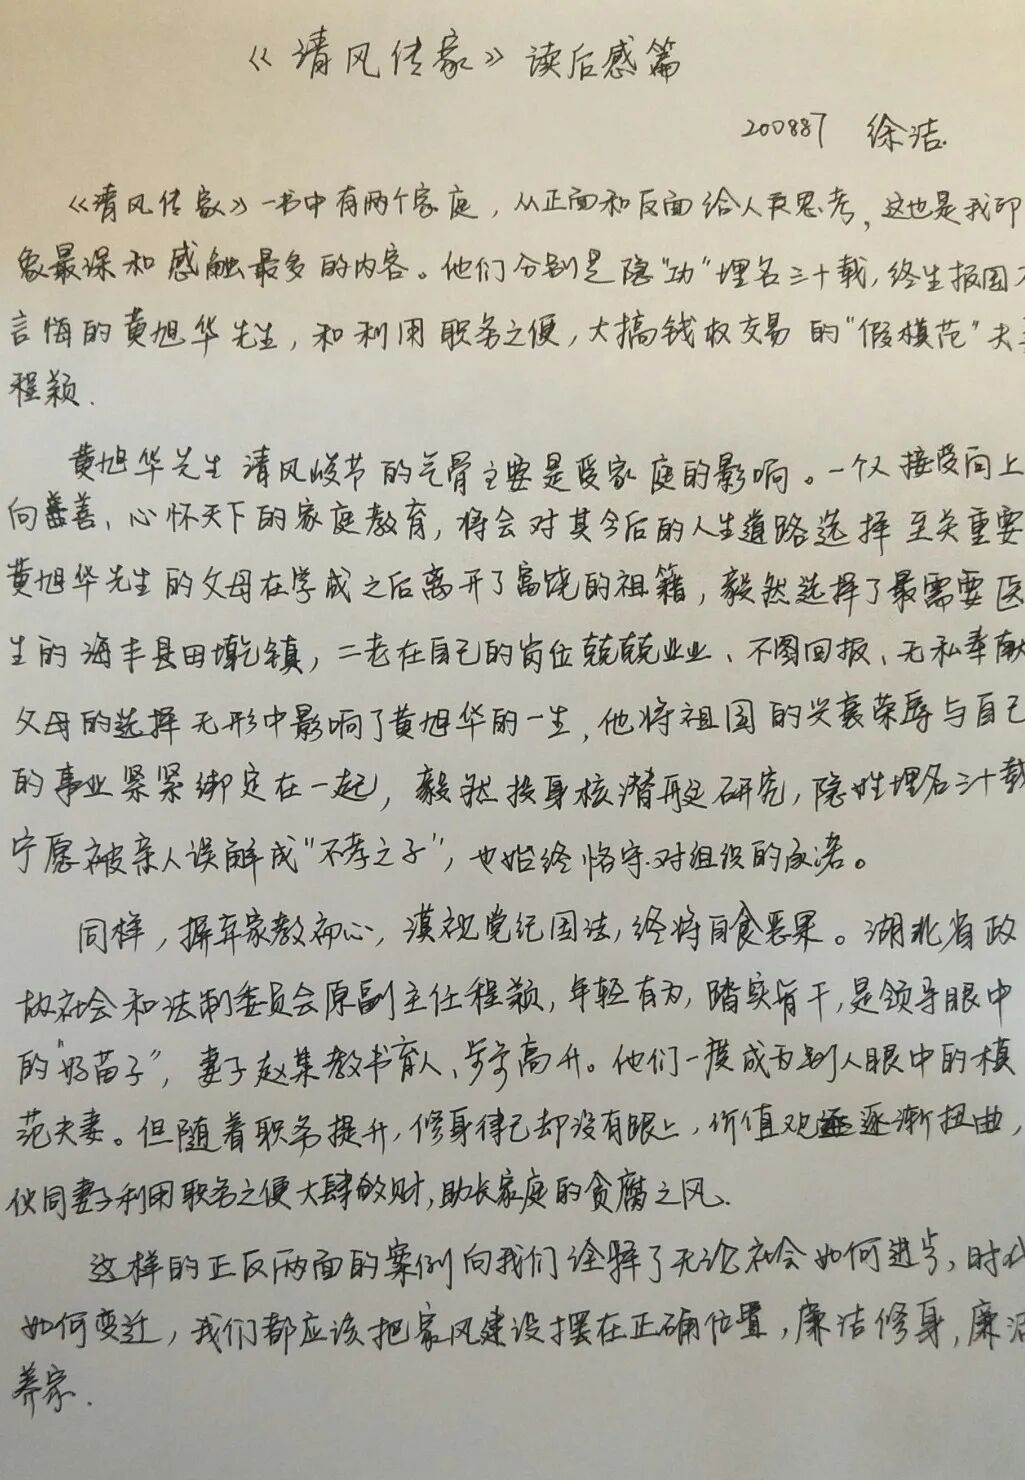 《清风传家》读后感篇
200887 徐洁.
《清风传家》一书中有两个家庭，从正面和反面给人更思考，这也是我印
象最深和感触最多的内容。他们分别是隐“功”埋名三十载，终生报国不
言悔的黄旭华先生，和利用职务之便，大搞钱权交易的“假模范”夫妻
程颖.
黄旭华先生清风峻节的气骨主要是受家庭的影响。一个人接受向上
向善、心怀天下的家庭教育，将会对其今后的人生道路选择至关重要
黄旭华先生的父母在学成之后离开了富饶的祖籍，毅然选择了最需要医
生的海丰县田墘镇，二老在自己的岗位兢兢业业、不图回报、无私奉献
父母的选择无形中影响了黄旭华的一生，他将祖国的兴衰荣辱与自己
的事业紧紧绑定在一起，毅然投身核潜艇研究，隐姓埋名三十载
宁愿被亲人误解成“不孝之子”，也始终恪守对组织的承诺。
同样，摒弃家教初心，漠视党纪国法，终将自食恶果。湖北省政
协社会和法制委员会原副主任程颖，年轻有为，踏实肯干，是领导眼中
的“好苗子”，妻子赵某教书育人、步步高升。他们一度成为别人眼中的模
范夫妻。但随着职务提升，修身律己却没有跟上，价值观逐渐扭曲，
伙同妻子利用职务之便大肆敛财，助长家庭的贪腐之风.
这样的正反两面的案例向我们诠释了无论社会如何进步，时代
如何变迁，我们都应该把家风建设摆在正确位置，廉洁修身，廉洁
养家.